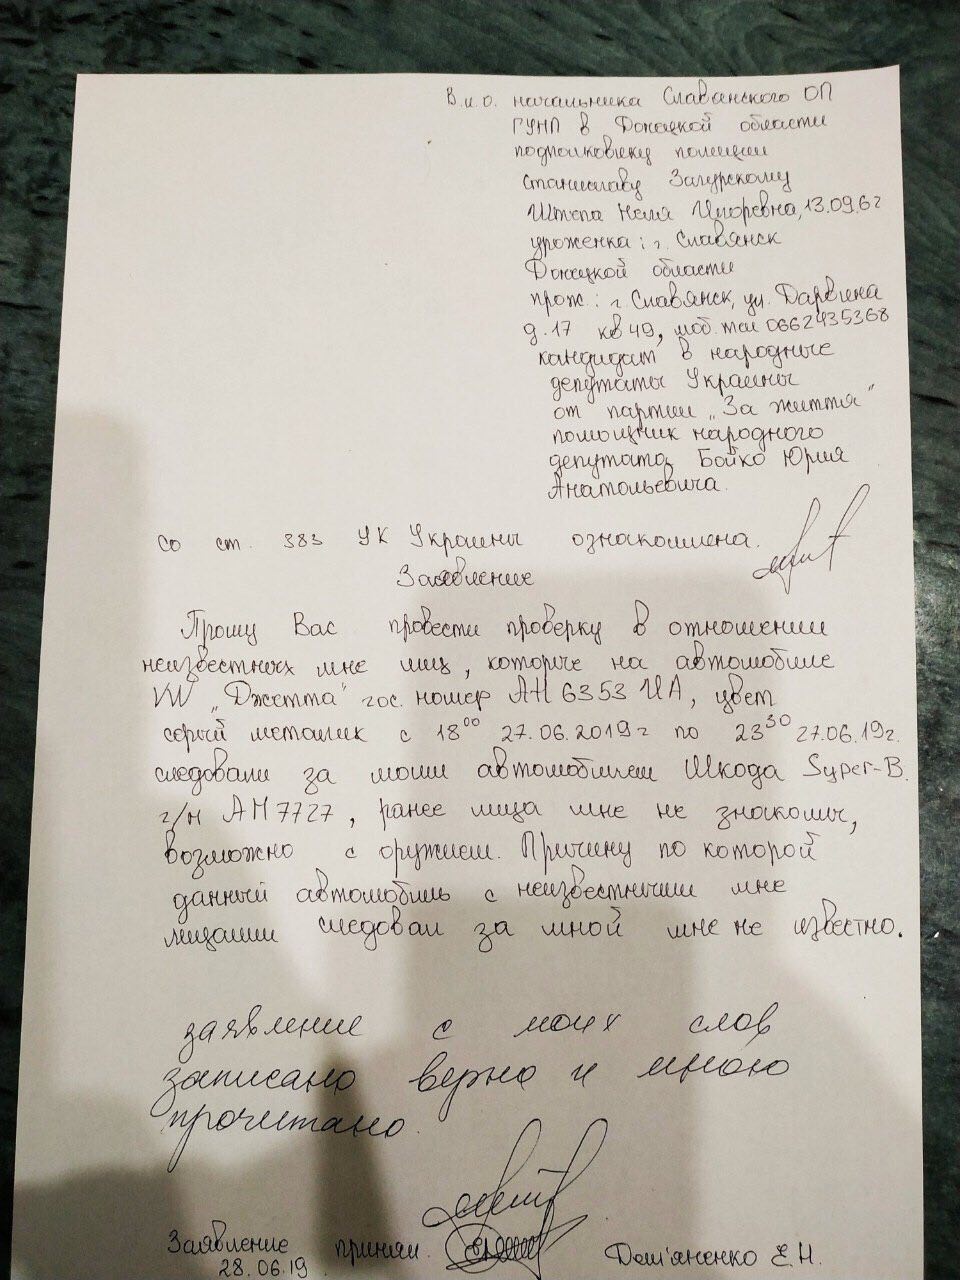 В.и.о. начальника Славянского ОП
ГУНП в Донецкой области
подполковнику полиции
Станиславу Загурскому
Штепа Неля Игоревна, 13.09.62
уроженка: г. Славянск
Донецкой области
прож: г. Славянск, ул. Дарвина
д. 17 кв 49, моб. тел 0662435368
кандидат в народные
депутаты Украины
от партии „За життя"
помощник народного
депутата Бойко Юрия
Анатольевича.
Со ст. 383 УК Украины ознакомлена.
Заявление
Прошу Вас провести проверку в отношении
неизвестных мне лиц, которые на автомобиле
VW „Джетта" гос. номер АН 6353 ИА, цвет
серый металик с 18⁰⁰ 27.06.2019г по 23³⁰ 27.06.19г.
следовали за моим автомобилем Шкода Syper-B.
г/н АН 7727, ранее лица мне не знакомы,
возможно с оружием. Причину по которой
данный автомобиль с неизвестными мне
лицами следовал за мной мне не известно.
заявление с моих слов
записано верно и мною
прочитано.
Заявление принял Дем'яненко Е.Н.
28.06.19.